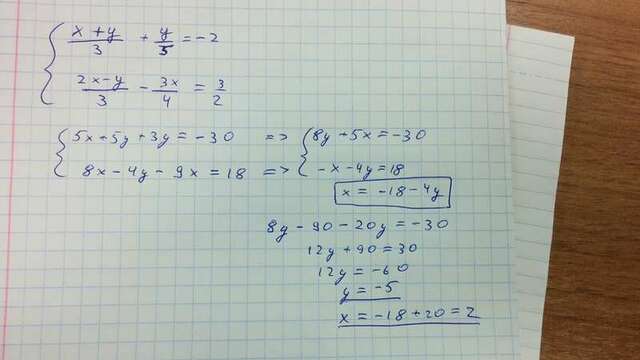 (x+y)/3 + y/5 = -2
(2x-y)/3 - 3x/4 = 3/2
5x+5y+3y=-30 => 8y+5x=-30
8x-4y-9x=18 => -x-4y=18
x=-18-4y
8y-90-20y=-30
12y+90=30
12y=-60
y=-5
x=-18+20=2